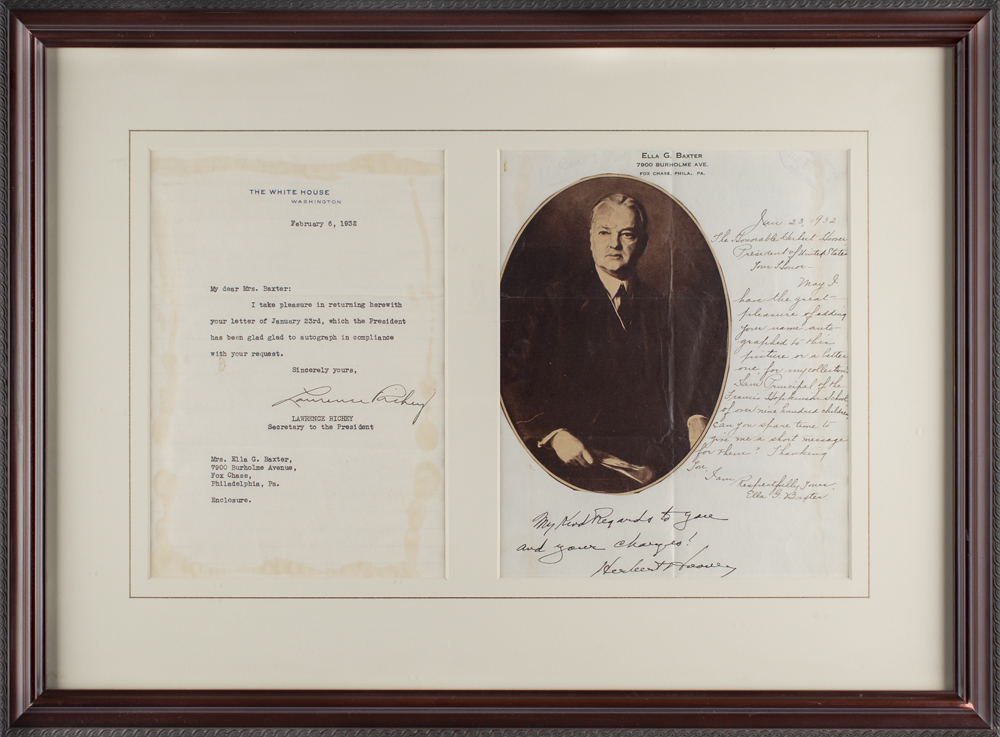 THE WHITE HOUSE
WASHINGTON
February 6, 1932
My dear Mrs. Baxter:
I take pleasure in returning herewith
your letter of January 23rd, which the President
has been glad glad to autograph in compliance
with your request.
Sincerely yours,
Lawrence Richey
LAWRENCE RICHEY
Secretary to the President
Mrs. Ella G. Baxter,
7900 Burholme Avenue,
Fox Chase,
Philadelphia, Pa.
Enclosure.
ELLA G. BAXTER
7900 BURHOLME AVE.
FOX CHASE, PHILA., PA.
Jan 23, 1932
The Honorable Herbert Hoover
President of United States
Your Honor-
May I
have the great
pleasure of adding
your name auto-
graphed to this
picture or a better
one, for my collection
I am Principal of the
Francis Hopkinson School
of over nine hundred children
Can you spare time to
give me a short message
for them? Thanking
You
I am
Respectfully Yours,
Ella G. Baxter
My Kind Regards to you
and your charges!
Herbert Hoover